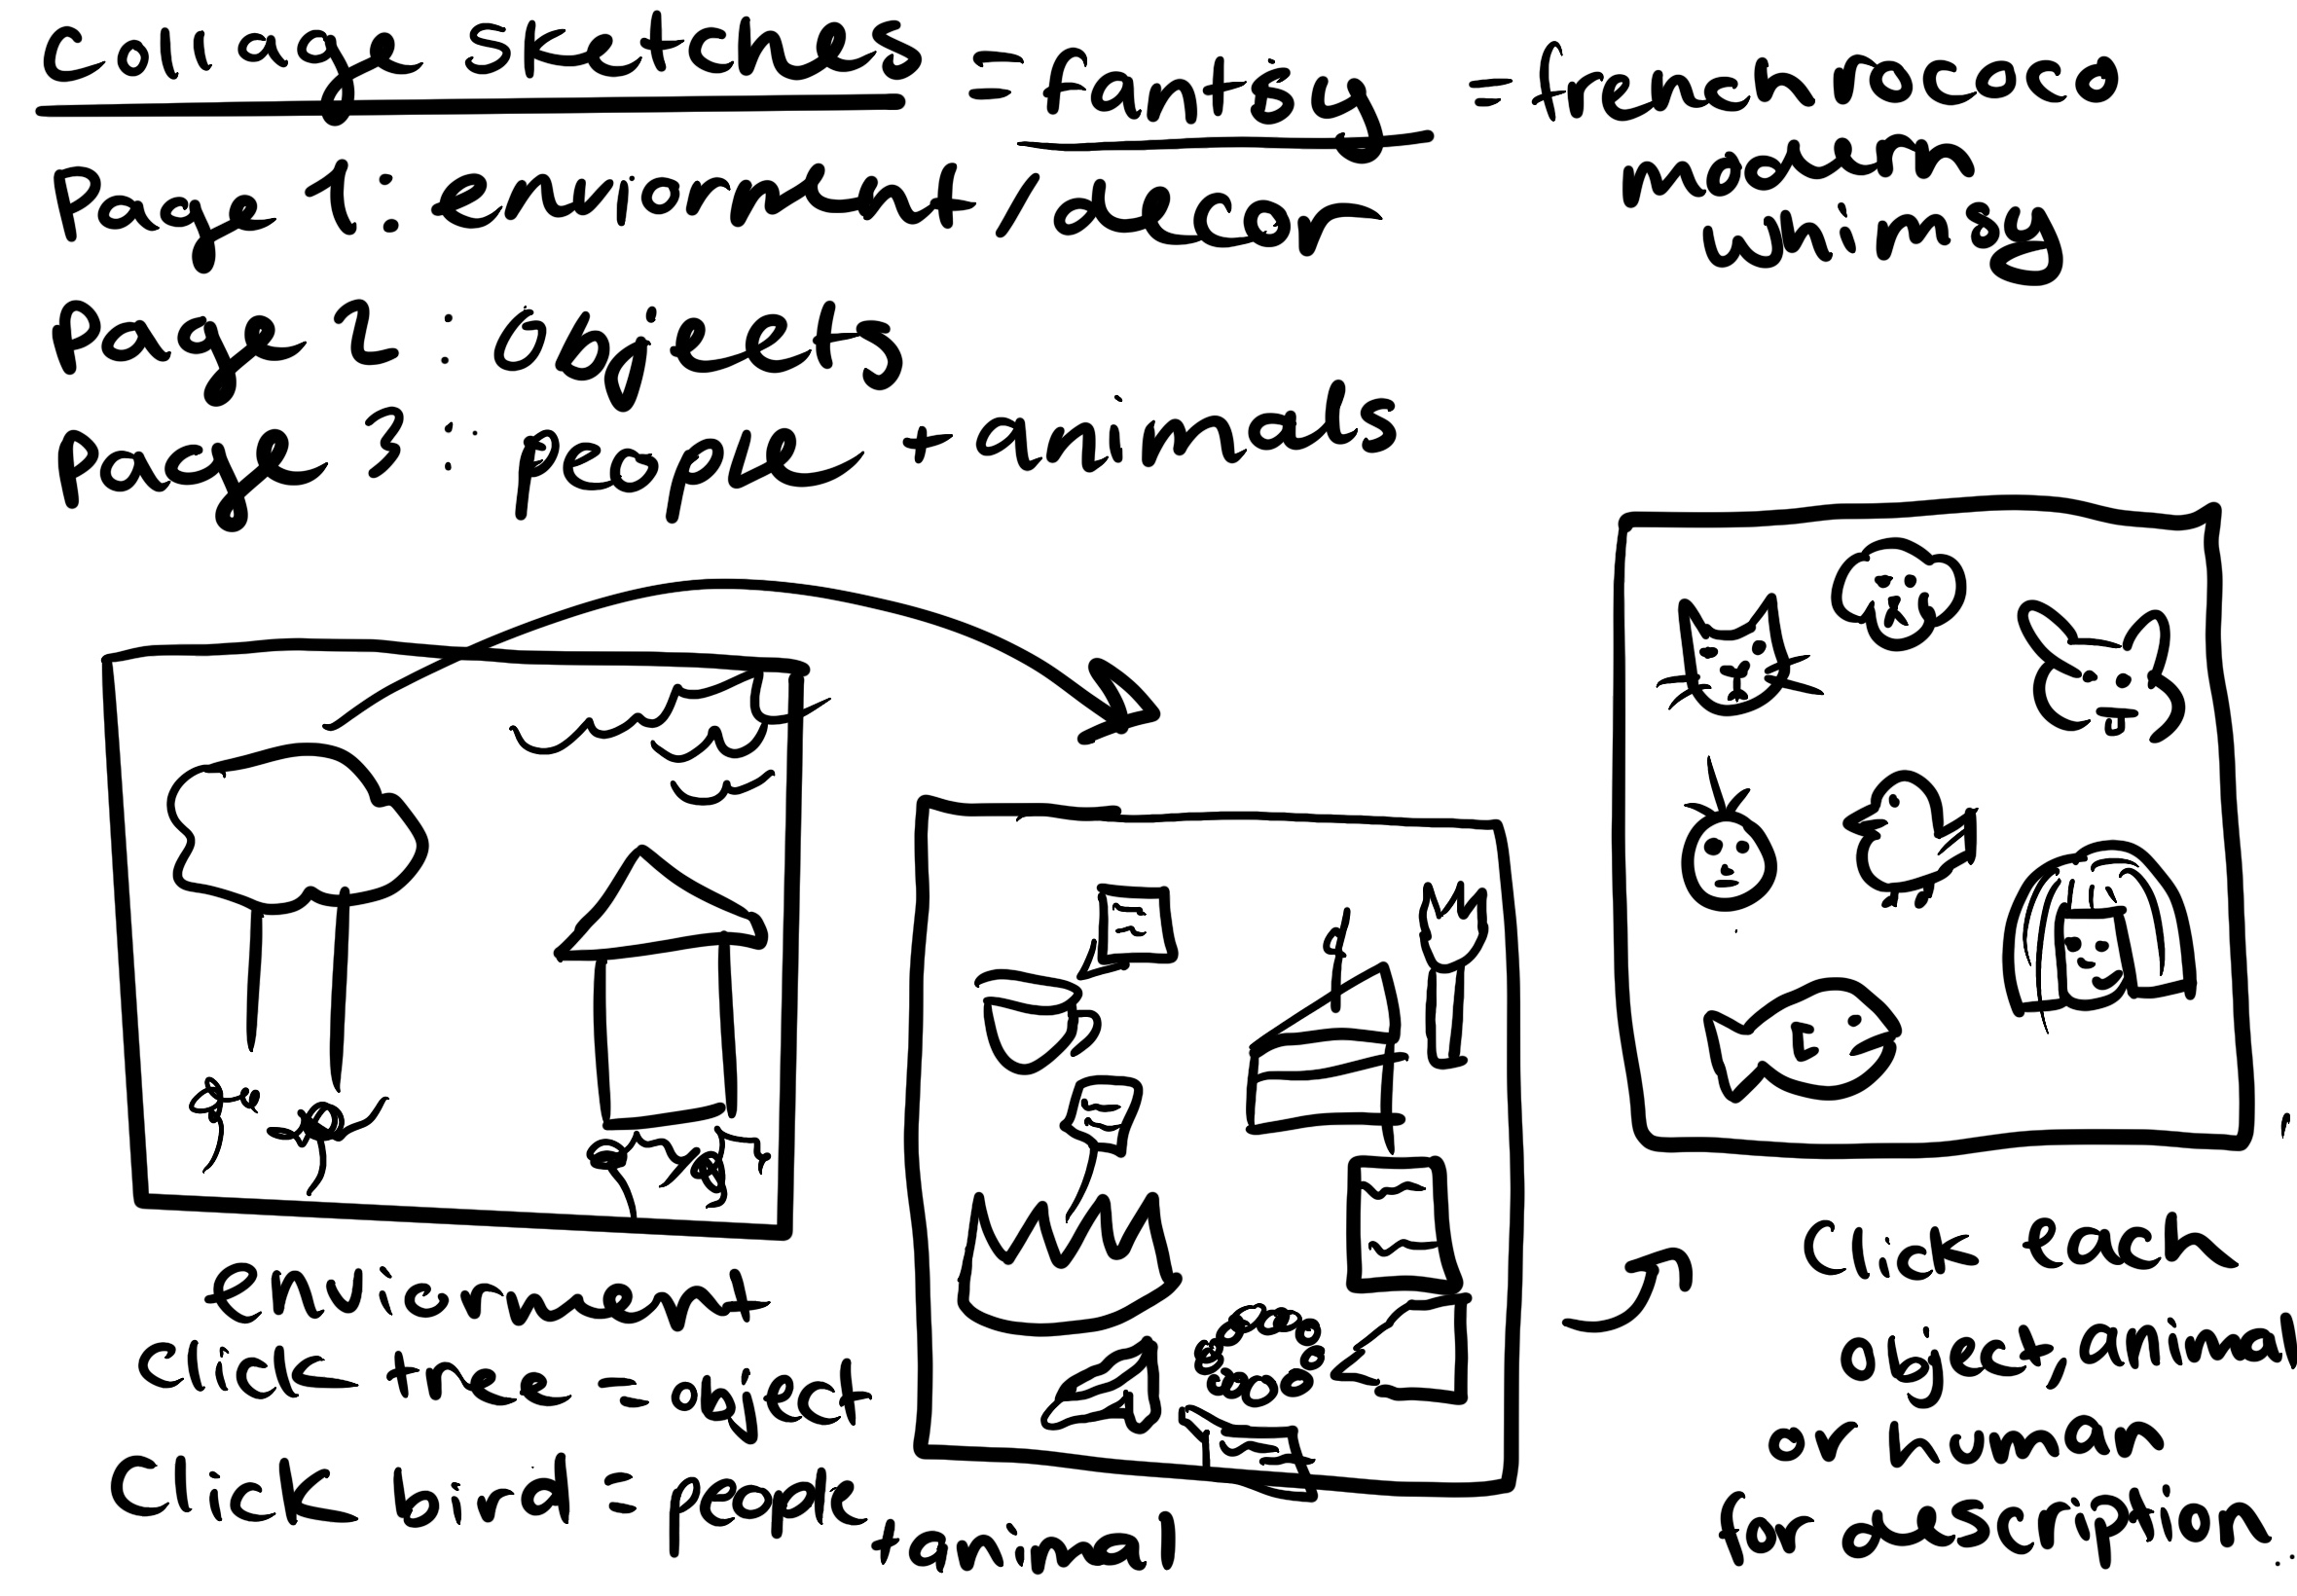 Collage sketches = fantsy = french rococo
modern
whimsy
Page 1: enviornment/decor
page 2: objects
page 3: people + animals
enviornment
click tree = object
Click bird = people
+ animal
Click each
object, animal
or human
for description